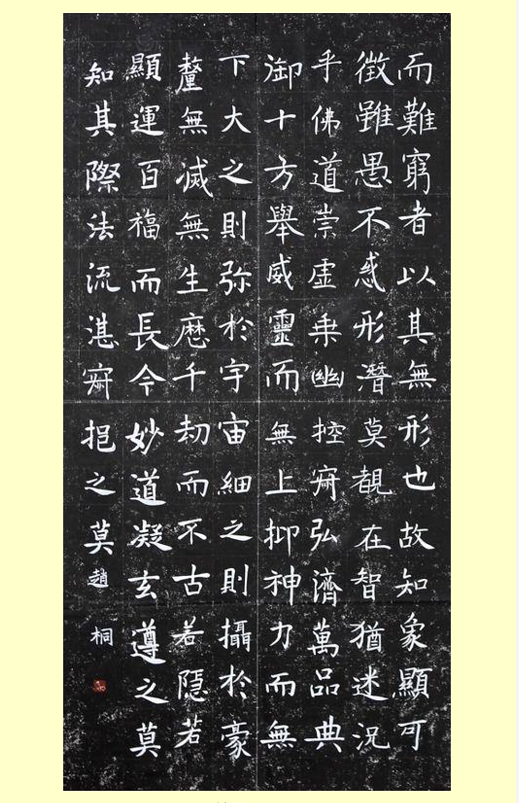 而難窮者以其無形也故知象顯可
徵雖愚不惑形潛莫覩在智猶迷況
乎佛道崇虛乘幽控寂弘濟萬品典
御十方舉威靈而無上抑神力而無
下大之則弥於宇宙細之則攝於豪
釐無滅無生歷千劫而不古若隱若
顯運百福而長今妙道凝玄遵之莫
知其際法流湛寂挹之莫趙桐